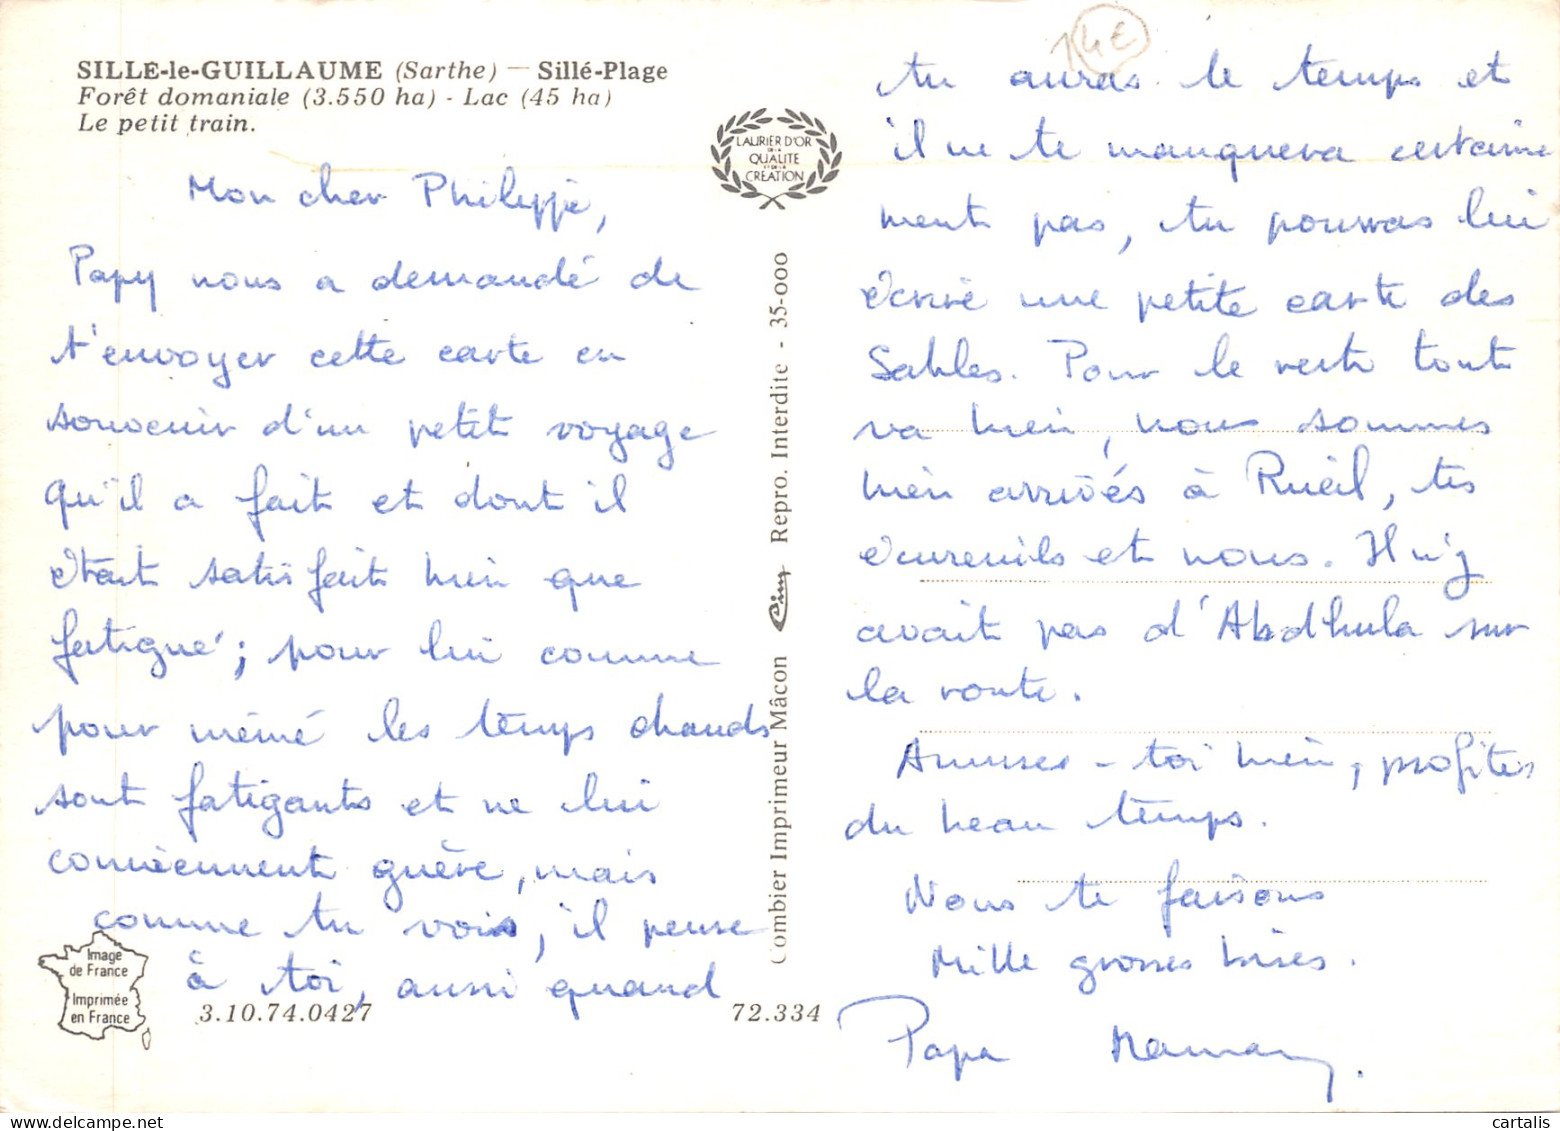 SILLE-le-GUILLAUME (Sarthe) — Sillé-Plage
Forêt domaniale (3.550 ha) - Lac (45 ha)
Le petit train.
Mon cher Philippe,
Papy nous a demandé de
t'envoyer cette carte en
souvenir d'un petit voyage
qu'il a fait et dont il
était satisfait bien que
fatigué ; pour lui comme
pour mémé les temps chauds
sont fatigants et ne lui
conviennent guère, mais
comme tu vois, il pense
à toi, aussi quand
Image
de France
Imprimée
en France
3.10.74.0427
72.334
LAURIER D'OR
DE LA
QUALITE
ET DE LA
CREATION
Combier Imprimeur Mâcon Cim Repro. Interdite - 35-000
14€
tu auras le temps et
il ne te manquera certaine
ment pas, tu pourras lui
écrire une petite carte des
Sables. Pour le reste tout
va bien, nous sommes
bien arrivés à Rueil, tes
écureuils et nous. Il n'y
avait pas d'Abdhula sur
la route.
Amuses-toi bien, profites
du beau temps.
Nous te faisons
Mille grosses bises.
Papa Maman.
cartalis